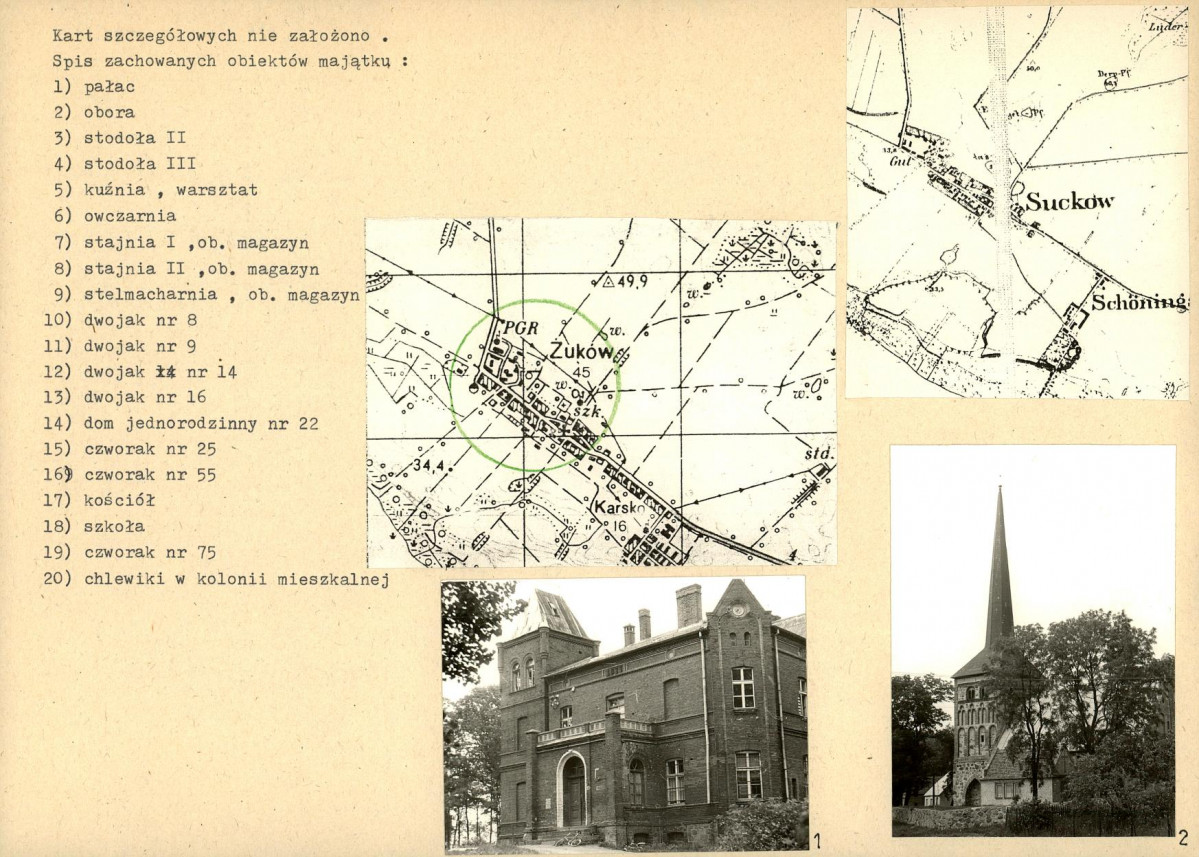 Kart szczegółowych nie założono .
Spis zachowanych obiektów majątku :
1) pałac
2) obora
3) stodoła II
4) stodoła III
5) kuźnia , warsztat
6) owczarnia
7) stajnia I ,ob. magazyn
8) stajnia II ,ob. magazyn
9) stelmacharnia , ob. magazyn
10) dwojak nr 8
11) dwojak nr 9
12) dwojak nr 14
13) dwojak nr 16
14) dom jednorodzinny nr 22
15) czworak nr 25
16) czworak nr 55
17) kościół
18) szkoła
19) czworak nr 75
20) chlewiki w kolonii mieszkalnej
49,9
w.
PGR
w.
Żuków
45
w.
szk.
w.
34,4
std.
Karsko
16
4
Gut
Suckow
Schöning
1
2